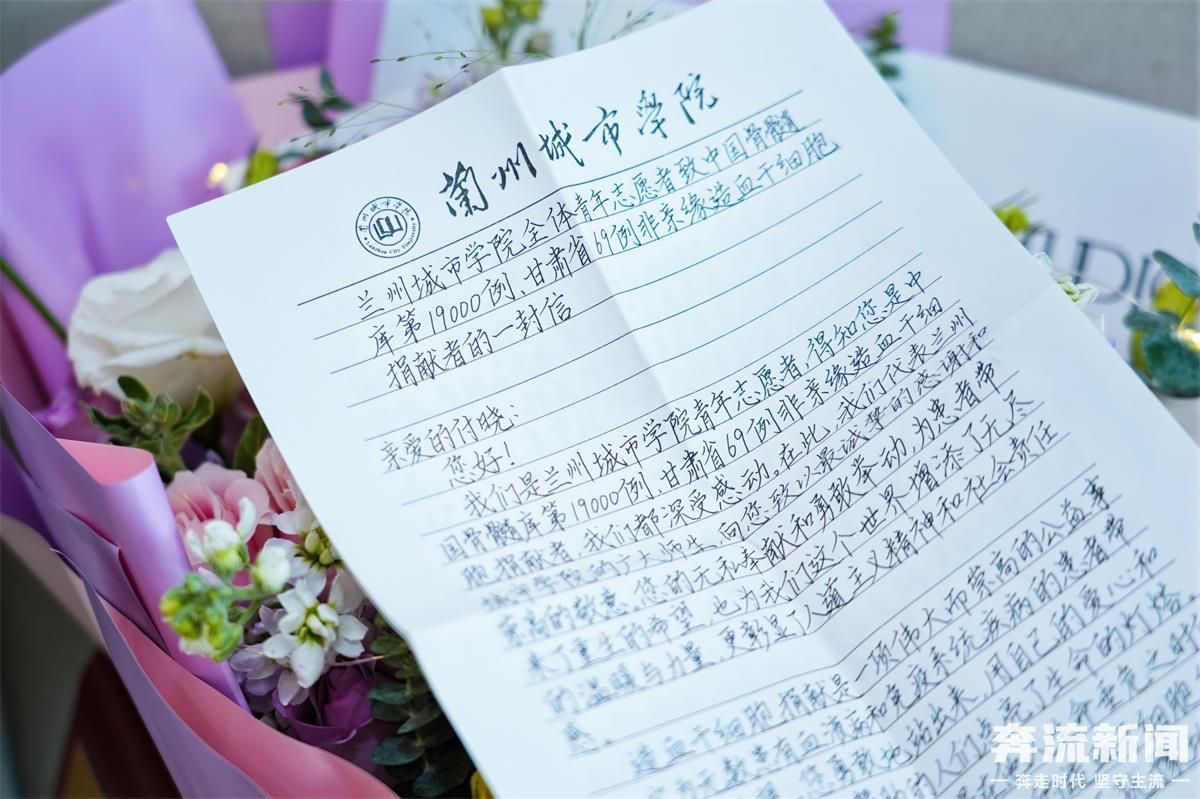 兰州城市学院
Lanzhou City University
兰州城市学院全体青年志愿者致中国骨髓
库第19000例、甘肃省69例非亲缘造血干细胞
捐献者的一封信
亲爱的付晓:
您好!
我们是兰州城市学院青年志愿者,得知您是中
国骨髓库第19000例、甘肃省69例非亲缘造血干细
胞捐献者,我们都深受感动。在此,我们代表兰州
城市学院的广大师生,向您致以最诚挚的感谢和
崇高的敬意。您的无私奉献和勇敢举动为患者带
来了重生的希望,也为我们这个世界增添了无尽
的温暖与力量,更彰显了人道主义精神和社会责任
感。
造血干细胞捐献是一项伟大而崇高的公益事
无数患有血液病和免疫系统疾病的患者带
您勇敢地站出来,用自己的爱心和
的人们点亮了生命的灯塔
命垂危之时
细胞
奔流新闻
奔走时代 坚守主流